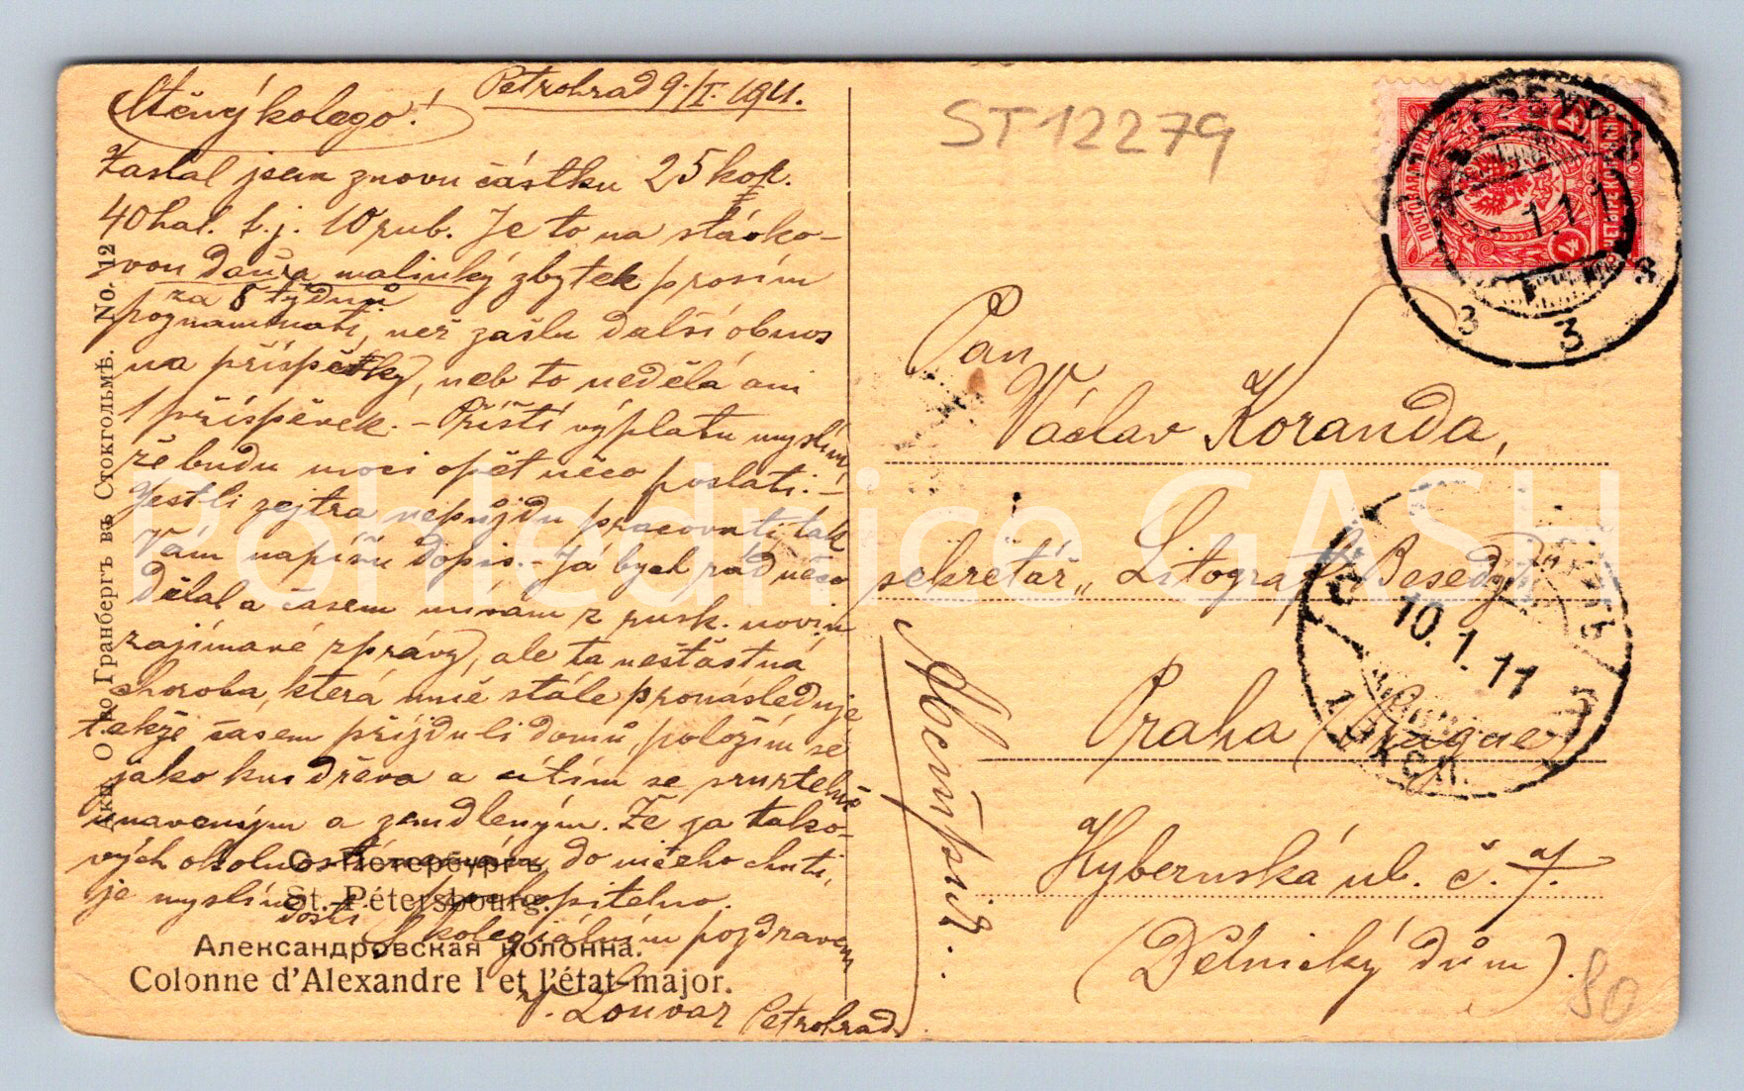 Petrohrad 9./I. 1911.
Ctěný kolego!
Zaslal jsem znovu částku 25 kop.
40 hal. t.j. 10 rub. Je to na
malinký zbytek prosím
za 5 týdnů
poznamenati, než zašlu další obnos
na příspěvky, neb to nedělá ani
1 příspěvek. – Příští výplatu myslím,
že budu moci opět něco poslati. –
Jestli zejtra nepůjdu pracovati tak
Vám napíšu dopis. – Já bych rád něco
dělal a časem mívám z rusk. novin
zajímavé zprávy, ale ta nešťastná
choroba, která mně stále pronásleduje
takže časem přijdu li domů, položím se
jako kus dřeva a cítím se
unaveným a zemdleným. Že za tako-
vých okolností do ničeho chuti,
je myslím dosti pochopitelno.
S kolegiálním pozdravem
Louvar Petrohrad
No. 12
Акц. О-во Гранбергъ въ Стокгольмѣ.
С.-Петербургъ
St.-Pétersbourg.
Александровская колонна.
Colonne d'Alexandre I et l'état-major.
ST 12279
Pan
Václav Koranda,
sekretář „Litograf. Besedy"
Praha (Prague)
Hybernská ul. č. 7.
(Dělnický dům).
80
10.1.11
3 3 8
Pohlednice GASH